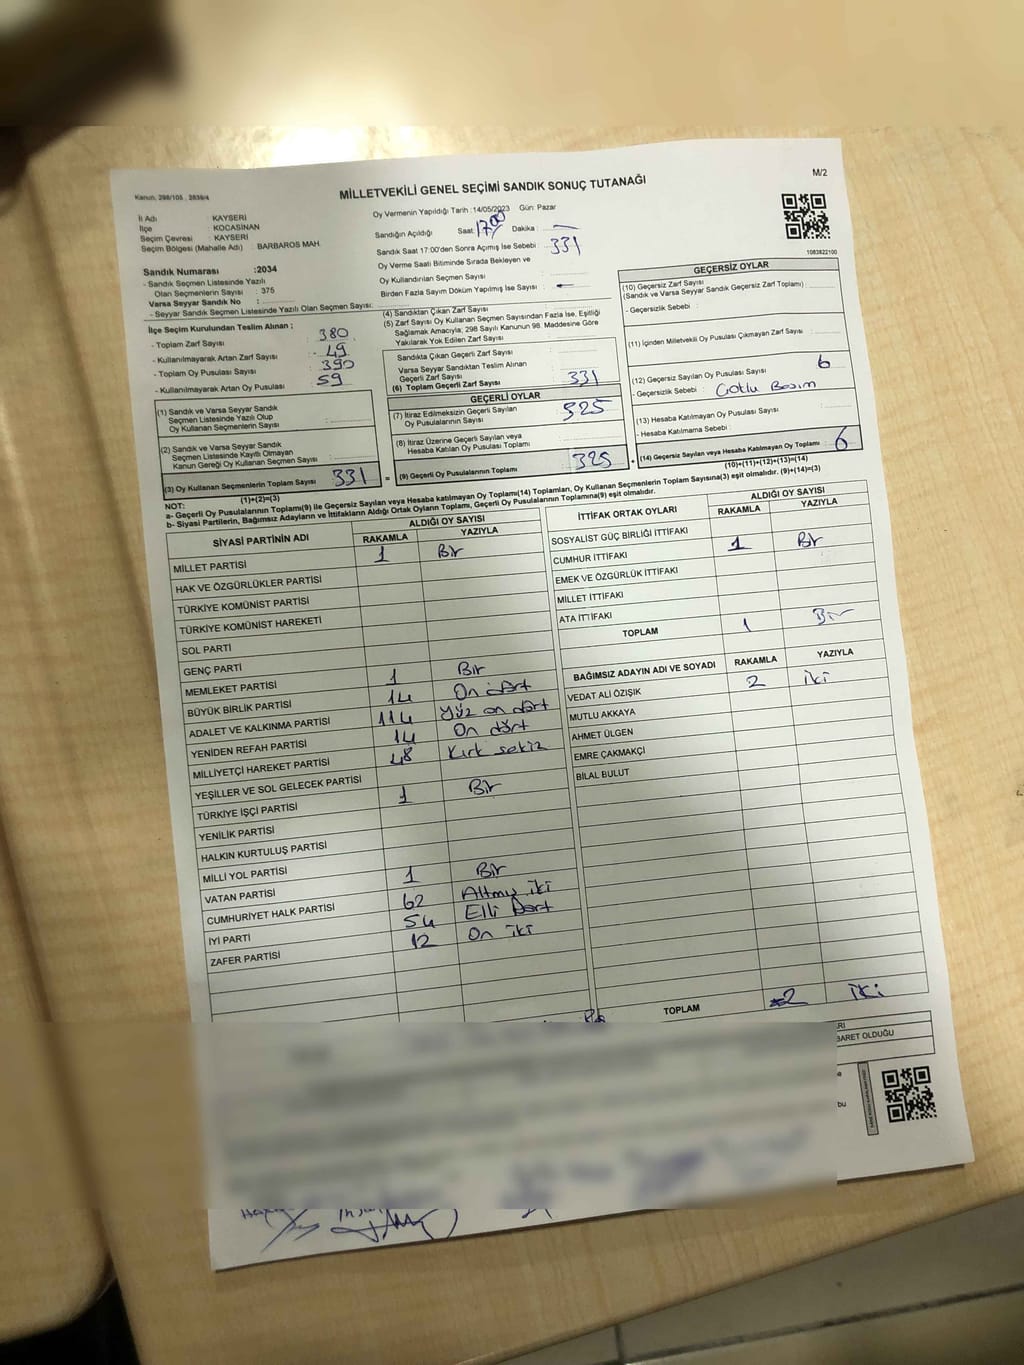 Kanun, 298/105 , 2839/4
MİLLETVEKİLİ GENEL SEÇİMİ SANDIK SONUÇ TUTANAĞI
M/2
İl Adı : KAYSERİ
İlçe : KOCASİNAN
Seçim Çevresi : KAYSERİ
Seçim Bölgesi (Mahalle Adı) : BARBAROS MAH.
Oy Vermenin Yapıldığı Tarih :14/05/2023 Gün: Pazar
Sandığın Açıldığı Saat: 17 00 Dakika :
Sandık Saat 17:00'den Sonra Açımış İse Sebebi :
Oy Verme Saati Bitiminde Sırada Bekleyen ve
Oy Kullandırılan Seçmen Sayısı : 331
Birden Fazla Sayım Döküm Yapılmış İse Sayısı : -
1083822100
Sandık Numarası :2034
- Sandık Seçmen Listesinde Yazılı
Olan Seçmenlerin Sayısı : 375
Varsa Seyyar Sandık No :
- Seyyar Sandık Seçmen Listesinde Yazılı Olan Seçmen Sayısı:
İlçe Seçim Kurulundan Teslim Alınan ;
- Toplam Zarf Sayısı : 380
- Kullanılmayarak Artan Zarf Sayısı : 49
- Toplam Oy Pusulası Sayısı : 390
- Kullanılmayarak Artan Oy Pusulası : 59
(1) Sandık ve Varsa Seyyar Sandık
Seçmen Listesinde Yazılı Olup
Oy Kullanan Seçmenlerin Sayısı :
(2) Sandık ve Varsa Seyyar Sandık
Seçmen Listesinde Kayıtlı Olmayan
Kanun Gereği Oy Kullanan Seçmen Sayısı :
(3) Oy Kullanan Seçmenlerin Toplam Sayısı 331
(1)+(2)=(3)
(4) Sandıktan Çıkan Zarf Sayısı
(5) Zarf Sayısı Oy Kullanan Seçmen Sayısından Fazla İse, Eşitliği
Sağlamak Amacıyla; 298 Sayılı Kanunun 98. Maddesine Göre
Yakılarak Yok Edilen Zarf Sayısı :
Sandıkta Çıkan Geçerli Zarf Sayısı
Varsa Seyyar Sandıktan Teslim Alınan
Geçerli Zarf Sayısı
(6) Toplam Geçerli Zarf Sayısı 331
GEÇERLİ OYLAR
(7) İtiraz Edilmeksizin Geçerli Sayılan
Oy Pusulalarının Sayısı : 325
(8) İtiraz Üzerine Geçerli Sayılan veya
Hesaba Katılan Oy Pusulası Toplamı
= (9) Geçerli Oy Pusulalarının Toplamı 325 +
GEÇERSİZ OYLAR
(10) Geçersiz Zarf Sayısı
(Sandık ve Varsa Seyyar Sandık Geçersiz Zarf Toplamı)
- Geçersizlik Sebebi :
(11) İçinden Milletvekili Oy Pusulası Çıkmayan Zarf Sayısı
(12) Geçersiz Sayılan Oy Pusulası Sayısı : 6
- Geçersizlik Sebebi :
(13) Hesaba Katılmayan Oy Pusulası Sayısı
- Hesaba Katılmama Sebebi :
(14) Geçersiz Sayılan veya Hesaba Katılmayan Oy Toplamı : 6
(10)+(11)+(12)+(13)=(14)
NOT:
a- Geçerli Oy Pusulalarının Toplamı(9) ile Geçersiz Sayılan veya Hesaba katılmayan Oy Toplamı(14) Toplamları, Oy Kullanan Seçmenlerin Toplam Sayısına(3) eşit olmalıdır. (9)+(14)=(3)
b- Siyasi Partilerin, Bağımsız Adayların ve İttifakların Aldığı Ortak Oyların Toplamı, Geçerli Oy Pusulalarının Toplamına(9) eşit olmalıdır.
SİYASİ PARTİNİN ADI ALDIĞI OY SAYISI
RAKAMLA YAZIYLA
MİLLET PARTİSİ 1 Bir
HAK VE ÖZGÜRLÜKLER PARTİSİ
TÜRKİYE KOMÜNİST PARTİSİ
TÜRKİYE KOMÜNİST HAREKETİ
SOL PARTİ
GENÇ PARTİ
MEMLEKET PARTİSİ 1 Bir
BÜYÜK BİRLİK PARTİSİ 14 On dört
ADALET VE KALKINMA PARTİSİ 114 Yüz on dört
YENİDEN REFAH PARTİSİ 14 On dört
MİLLİYETÇİ HAREKET PARTİSİ 48 Kırk sekiz
YEŞİLLER VE SOL GELECEK PARTİSİ
TÜRKİYE İŞÇİ PARTİSİ 1 Bir
YENİLİK PARTİSİ
HALKIN KURTULUŞ PARTİSİ
MİLLİ YOL PARTİSİ
VATAN PARTİSİ 1 Bir
CUMHURİYET HALK PARTİSİ 62 Altmış iki
İYİ PARTİ 54 Elli Dört
ZAFER PARTİSİ 12 On iki
İTTİFAK ORTAK OYLARI ALDIĞI OY SAYISI
RAKAMLA YAZIYLA
SOSYALİST GÜÇ BİRLİĞİ İTTİFAKI
CUMHUR İTTİFAKI 1 Bir
EMEK VE ÖZGÜRLÜK İTTİFAKI
MİLLET İTTİFAKI
ATA İTTİFAKI
TOPLAM 1 Bir
BAĞIMSIZ ADAYIN ADI VE SOYADI RAKAMLA YAZIYLA
VEDAT ALİ ÖZIŞIK 2 iki
MUTLU AKKAYA
AHMET ÜLGEN
EMRE ÇAKMAKÇİ
BİLAL BULUT
TOPLAM 2 iki
BARET OLDUĞU